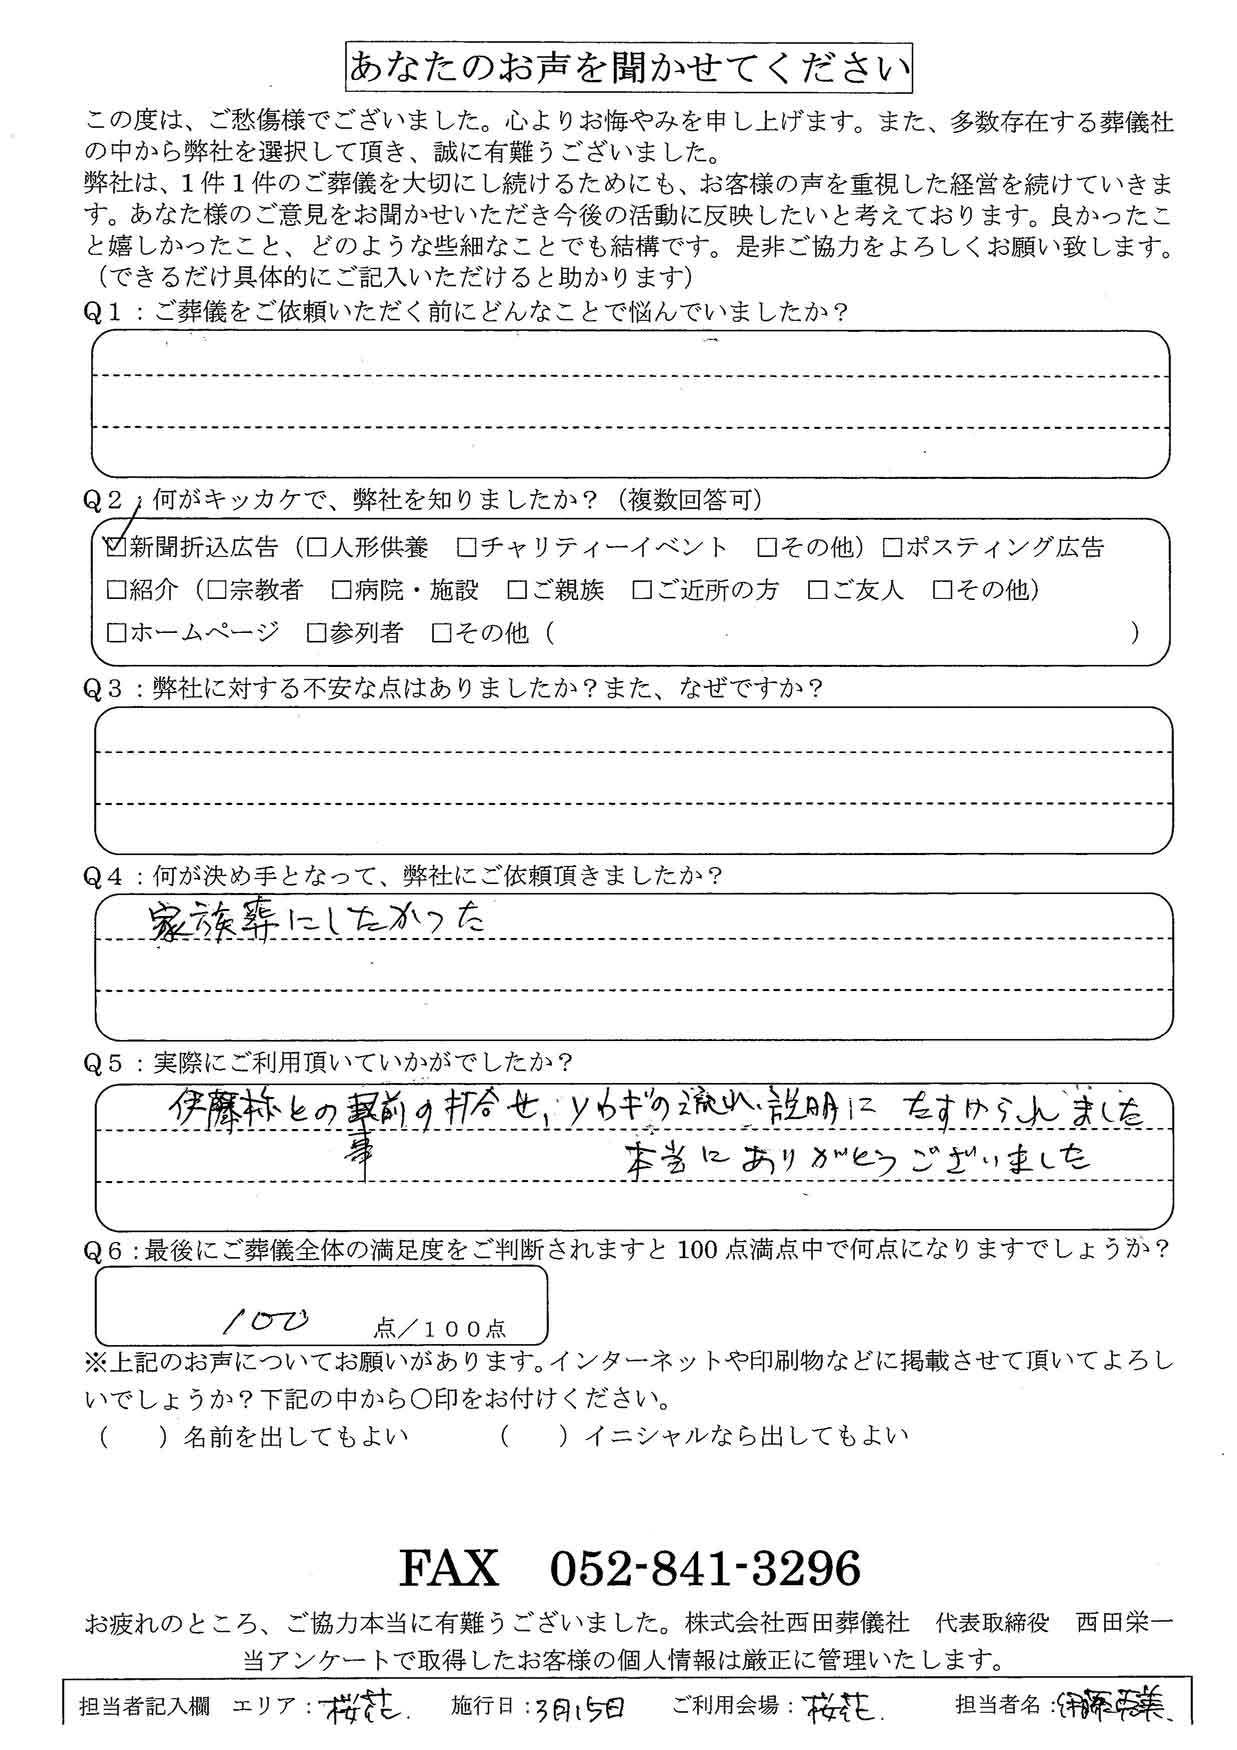 あなたのお声を聞かせてください
この度は、ご愁傷様でございました。心よりお悔やみを申し上げます。また、多数存在する葬儀社
の中から弊社を選択して頂き、誠に有難うございました。
弊社は、1件1件のご葬儀を大切にし続けるためにも、お客様の声を重視した経営を続けていきま
す。あなた様のご意見をお聞かせいただき今後の活動に反映したいと考えております。良かったこ
と嬉しかったこと、どのような些細なことでも結構です。是非ご協力をよろしくお願い致します。
（できるだけ具体的にご記入いただけると助かります）
Q1：ご葬儀をご依頼いただく前にどんなことで悩んでいましたか？
Q2：何がキッカケで、弊社を知りましたか？（複数回答可）
☑新聞折込広告（□人形供養　□チャリティーイベント　□その他）□ポスティング広告
□紹介（□宗教者　□病院・施設　□ご親族　□ご近所の方　□ご友人　□その他）
□ホームページ　□参列者　□その他（　　　　　　　　）
Q3：弊社に対する不安な点はありましたか？また、なぜですか？
Q4：何が決め手となって、弊社にご依頼頂きましたか？
家族葬にしたかった
Q5：実際にご利用頂いていかがでしたか？
伊藤様との 前の打合せ、ソウギの流れ、説明に たすけられました
事
本当にありがとうございました
Q6：最後にご葬儀全体の満足度をご判断されますと100点満点中で何点になりますでしょうか？
100 点／１００点
※上記のお声についてお願いがあります。インターネットや印刷物などに掲載させて頂いてよろし
いでしょうか？下記の中から〇印をお付けください。
（　　）名前を出してもよい　　　（　　）イニシャルなら出してもよい
FAX　052-841-3296
お疲れのところ、ご協力本当に有難うございました。株式会社西田葬儀社　代表取締役　西田栄一
当アンケートで取得したお客様の個人情報は厳正に管理いたします。
担当者記入欄　エリア：桜花.　施行日：3月15日　ご利用会場：桜花.　担当者名：伊藤